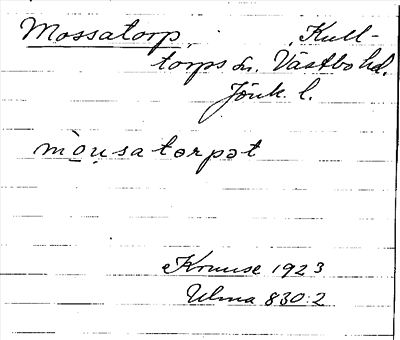 Mossatorp, Kull-
torps sn. Västbo hd.
Jönk. l.
mòu̯satorpət
Krouse 1923
Ulma 830:2